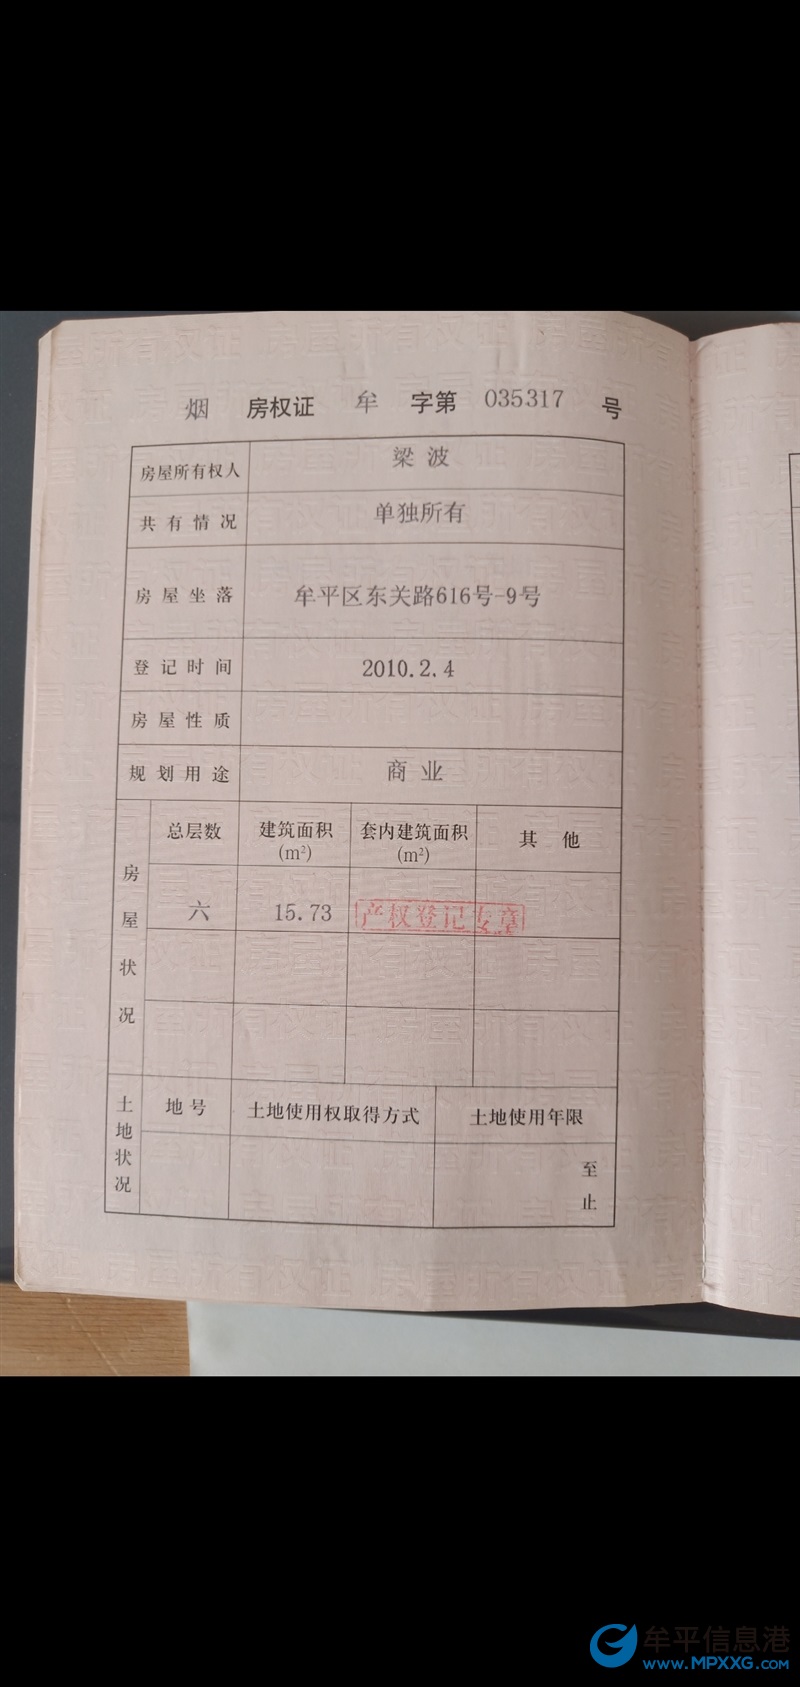 烟 房权证 牟 字第 035317 号
房屋所有权人 梁波
共有情况 单独所有
房屋坐落 牟平区东关路616号-9号
登记时间 2010.2.4
房屋性质
规划用途 商业
房屋状况
总层数 建筑面积(m²) 套内建筑面积(m²) 其他
六 15.73
产权登记专章
土地状况
地号 土地使用权取得方式 土地使用年限
至
止
牟平信息港
www.MPXXG.com